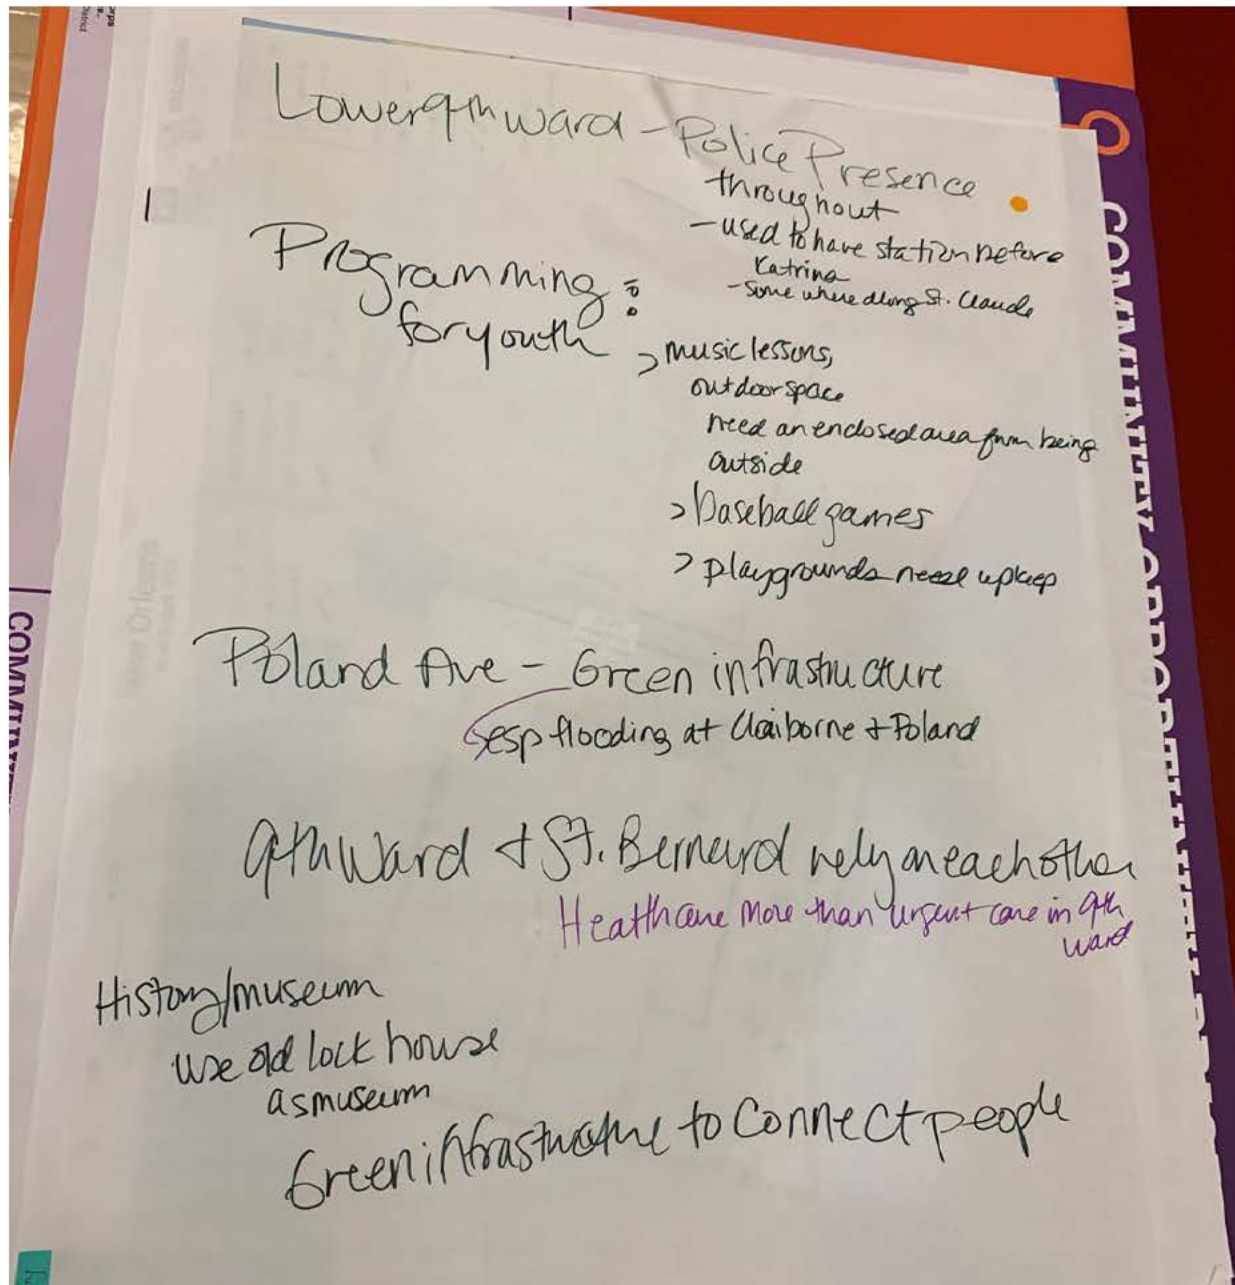 Lower 9th Ward - Police Presence
throughout
- used to have station before
Katrina
- Some where along St. Claude
Programming:
for youth
> music lessons,
outdoor space
need an enclosed area from being
outside
> baseball games
> playgrounds need upkeep
Poland Ave - Green infrastructure
esp flooding at Claiborne + Poland
9th Ward + St. Bernard rely on each other
Healthcare more than urgent care in 9th
ward
History/museum
use old lock house
as museum
Green infrastructure to connect people
COMMUNITY OPPORTUNITIES
New Orleans
District